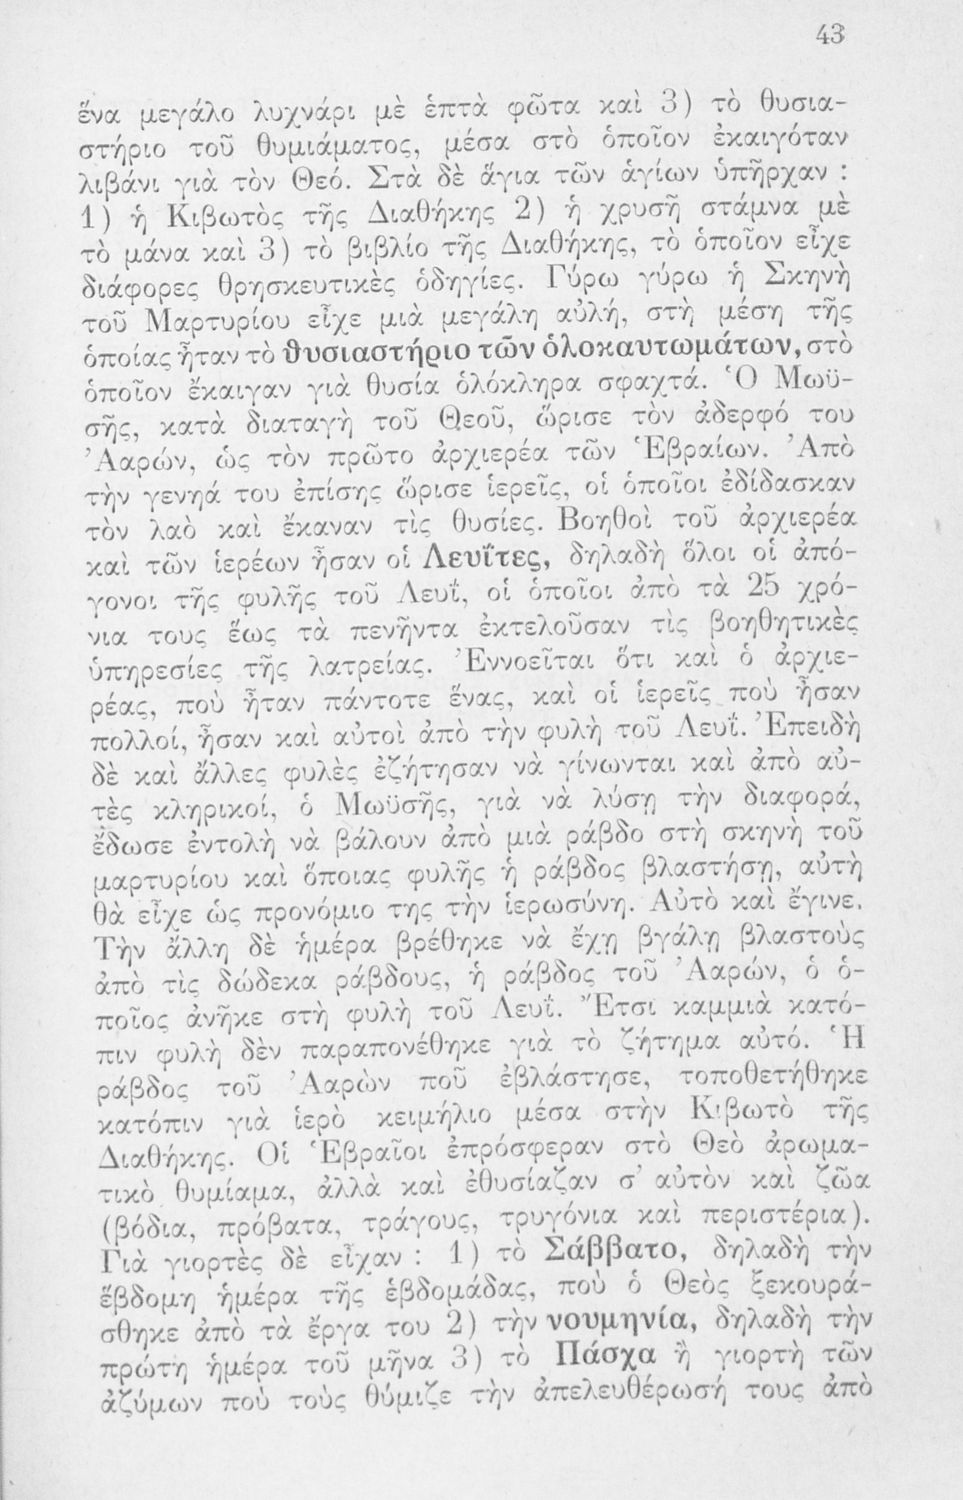 43
ἕνα μεγάλο λυχνάρι μὲ ἑπτὰ φῶτα καὶ 3) τὸ θυσια-
στήριο τοῦ θυμιάματος, μέσα στὸ ὁποῖον ἐκαιγόταν
λιβάνι γιὰ τὸν Θεό. Στὰ δὲ ἅγια τῶν ἁγίων ὑπῆρχαν :
1) ἡ Κιβωτὸς τῆς Διαθήκης 2) ἡ χρυσῆ στάμνα μὲ
τὸ μάνα καὶ 3) τὸ βιβλίο τῆς Διαθήκης, τὸ ὁποῖον εἶχε
διάφορες θρησκευτικὲς ὁδηγίες. Γύρω γύρω ἡ Σκηνὴ
τοῦ Μαρτυρίου εἶχε μιὰ μεγάλη αὐλή, στὴ μέση τῆς
ὁποίας ἦταν τὸ θυσιαστήριο τῶν ὁλοκαυτωμάτων, στὸ
ὁποῖον ἔκαιγαν γιὰ θυσία ὁλόκληρα σφαχτά. Ὁ Μωϋ-
σῆς, κατὰ διαταγὴ τοῦ Θεοῦ, ὥρισε τὸν ἀδερφό του
Ἀαρών, ὡς τὸν πρῶτο ἀρχιερέα τῶν Ἑβραίων. Ἀπὸ
τὴν γενηά του ἐπίσης ὥρισε ἱερεῖς, οἱ ὁποῖοι ἐδίδασκαν
τὸν λαὸ καὶ ἔκαναν τὶς θυσίες. Βοηθοὶ τοῦ ἀρχιερέα
καὶ τῶν ἱερέων ἦσαν οἱ Λευῖτες, δηλαδὴ ὅλοι οἱ ἀπό-
γονοι τῆς φυλῆς τοῦ Λευΐ, οἱ ὁποῖοι ἀπὸ τὰ 25 χρό-
νια τους ἕως τὰ πενῆντα ἐκτελοῦσαν τὶς βοηθητικὲς
ὑπηρεσίες τῆς λατρείας. Ἐννοεῖται ὅτι καὶ ὁ ἀρχιε-
ρέας, ποὺ ἦταν πάντοτε ἕνας, καὶ οἱ ἱερεῖς ποὺ ἦσαν
πολλοί, ἦσαν καὶ αὐτοὶ ἀπὸ τὴν φυλὴ τοῦ Λευΐ. Ἐπειδὴ
δὲ καὶ ἄλλες φυλὲς ἐζήτησαν νὰ γίνωνται καὶ ἀπὸ αὐ-
τὲς κληρικοί, ὁ Μωϋσῆς, γιὰ νὰ λύσῃ τὴν διαφορά,
ἔδωσε ἐντολὴ νὰ βάλουν ἀπὸ μιὰ ράβδο στὴ σκηνὴ τοῦ
μαρτυρίου καὶ ὅποιας φυλῆς ἡ ράβδος βλαστήσῃ, αὐτὴ
θὰ εἶχε ὡς προνόμιο της τὴν ἱερωσύνη. Αὐτὸ καὶ ἔγινε.
Τὴν ἄλλη δὲ ἡμέρα βρέθηκε νὰ ἔχῃ βγάλῃ βλαστοὺς
ἀπὸ τὶς δώδεκα ράβδους, ἡ ράβδος τοῦ Ἀαρών, ὁ ὁ-
ποῖος ἀνῆκε στὴ φυλὴ τοῦ Λευΐ. Ἔτσι καμμιὰ κατό-
πιν φυλὴ δὲν παραπονέθηκε γιὰ τὸ ζήτημα αὐτό. Ἡ
ράβδος τοῦ Ἀαρὼν ποῦ ἐβλάστησε, τοποθετήθηκε
κατόπιν γιὰ ἱερὸ κειμήλιο μέσα στὴν Κιβωτὸ τῆς
Διαθήκης. Οἱ Ἑβραῖοι ἐπρόσφεραν στὸ Θεὸ ἀρωμα-
τικὸ θυμίαμα, ἀλλὰ καὶ ἐθυσίαζαν σ' αὐτὸν καὶ ζῶα
(βόδια, πρόβατα, τράγους, τρυγόνια καὶ περιστέρια).
Γιὰ γιορτὲς δὲ εἶχαν : 1) τὸ Σάββατο, δηλαδὴ τὴν
ἕβδομη ἡμέρα τῆς ἑβδομάδας, ποὺ ὁ Θεὸς ξεκουρά-
σθηκε ἀπὸ τὰ ἔργα του 2) τὴν νουμηνία, δηλαδὴ τὴν
πρώτη ἡμέρα τοῦ μῆνα 3) τὸ Πάσχα ἢ γιορτὴ τῶν
ἀζύμων ποὺ τοὺς θύμιζε τὴν ἀπελευθέρωσή τους ἀπὸ